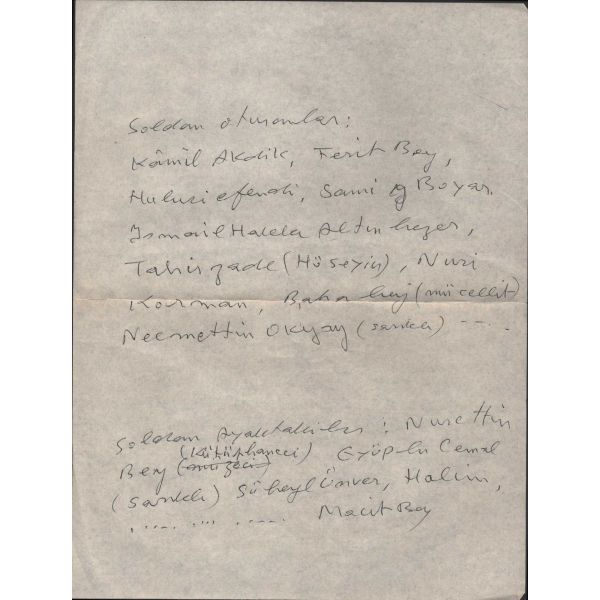 Soldan oturanlar:
Kâmil Akdik, Ferit Bey,
Hulusi efendi, Sami Boyar,
İsmail Hakkı Altınbezer,
Tahirzade (Hüseyin), Nuri
Korman, Baha bey (mücellit)
Necmettin Okyay (sarıklı) ....
Soldan Ayaktakiler: Nurettin
(Kütüphaneci)
Bey (müzeci) Eyüplü Cemal
(sarıklı) Süheyl Ünver, Halim,
..... ... .... Macit Bey